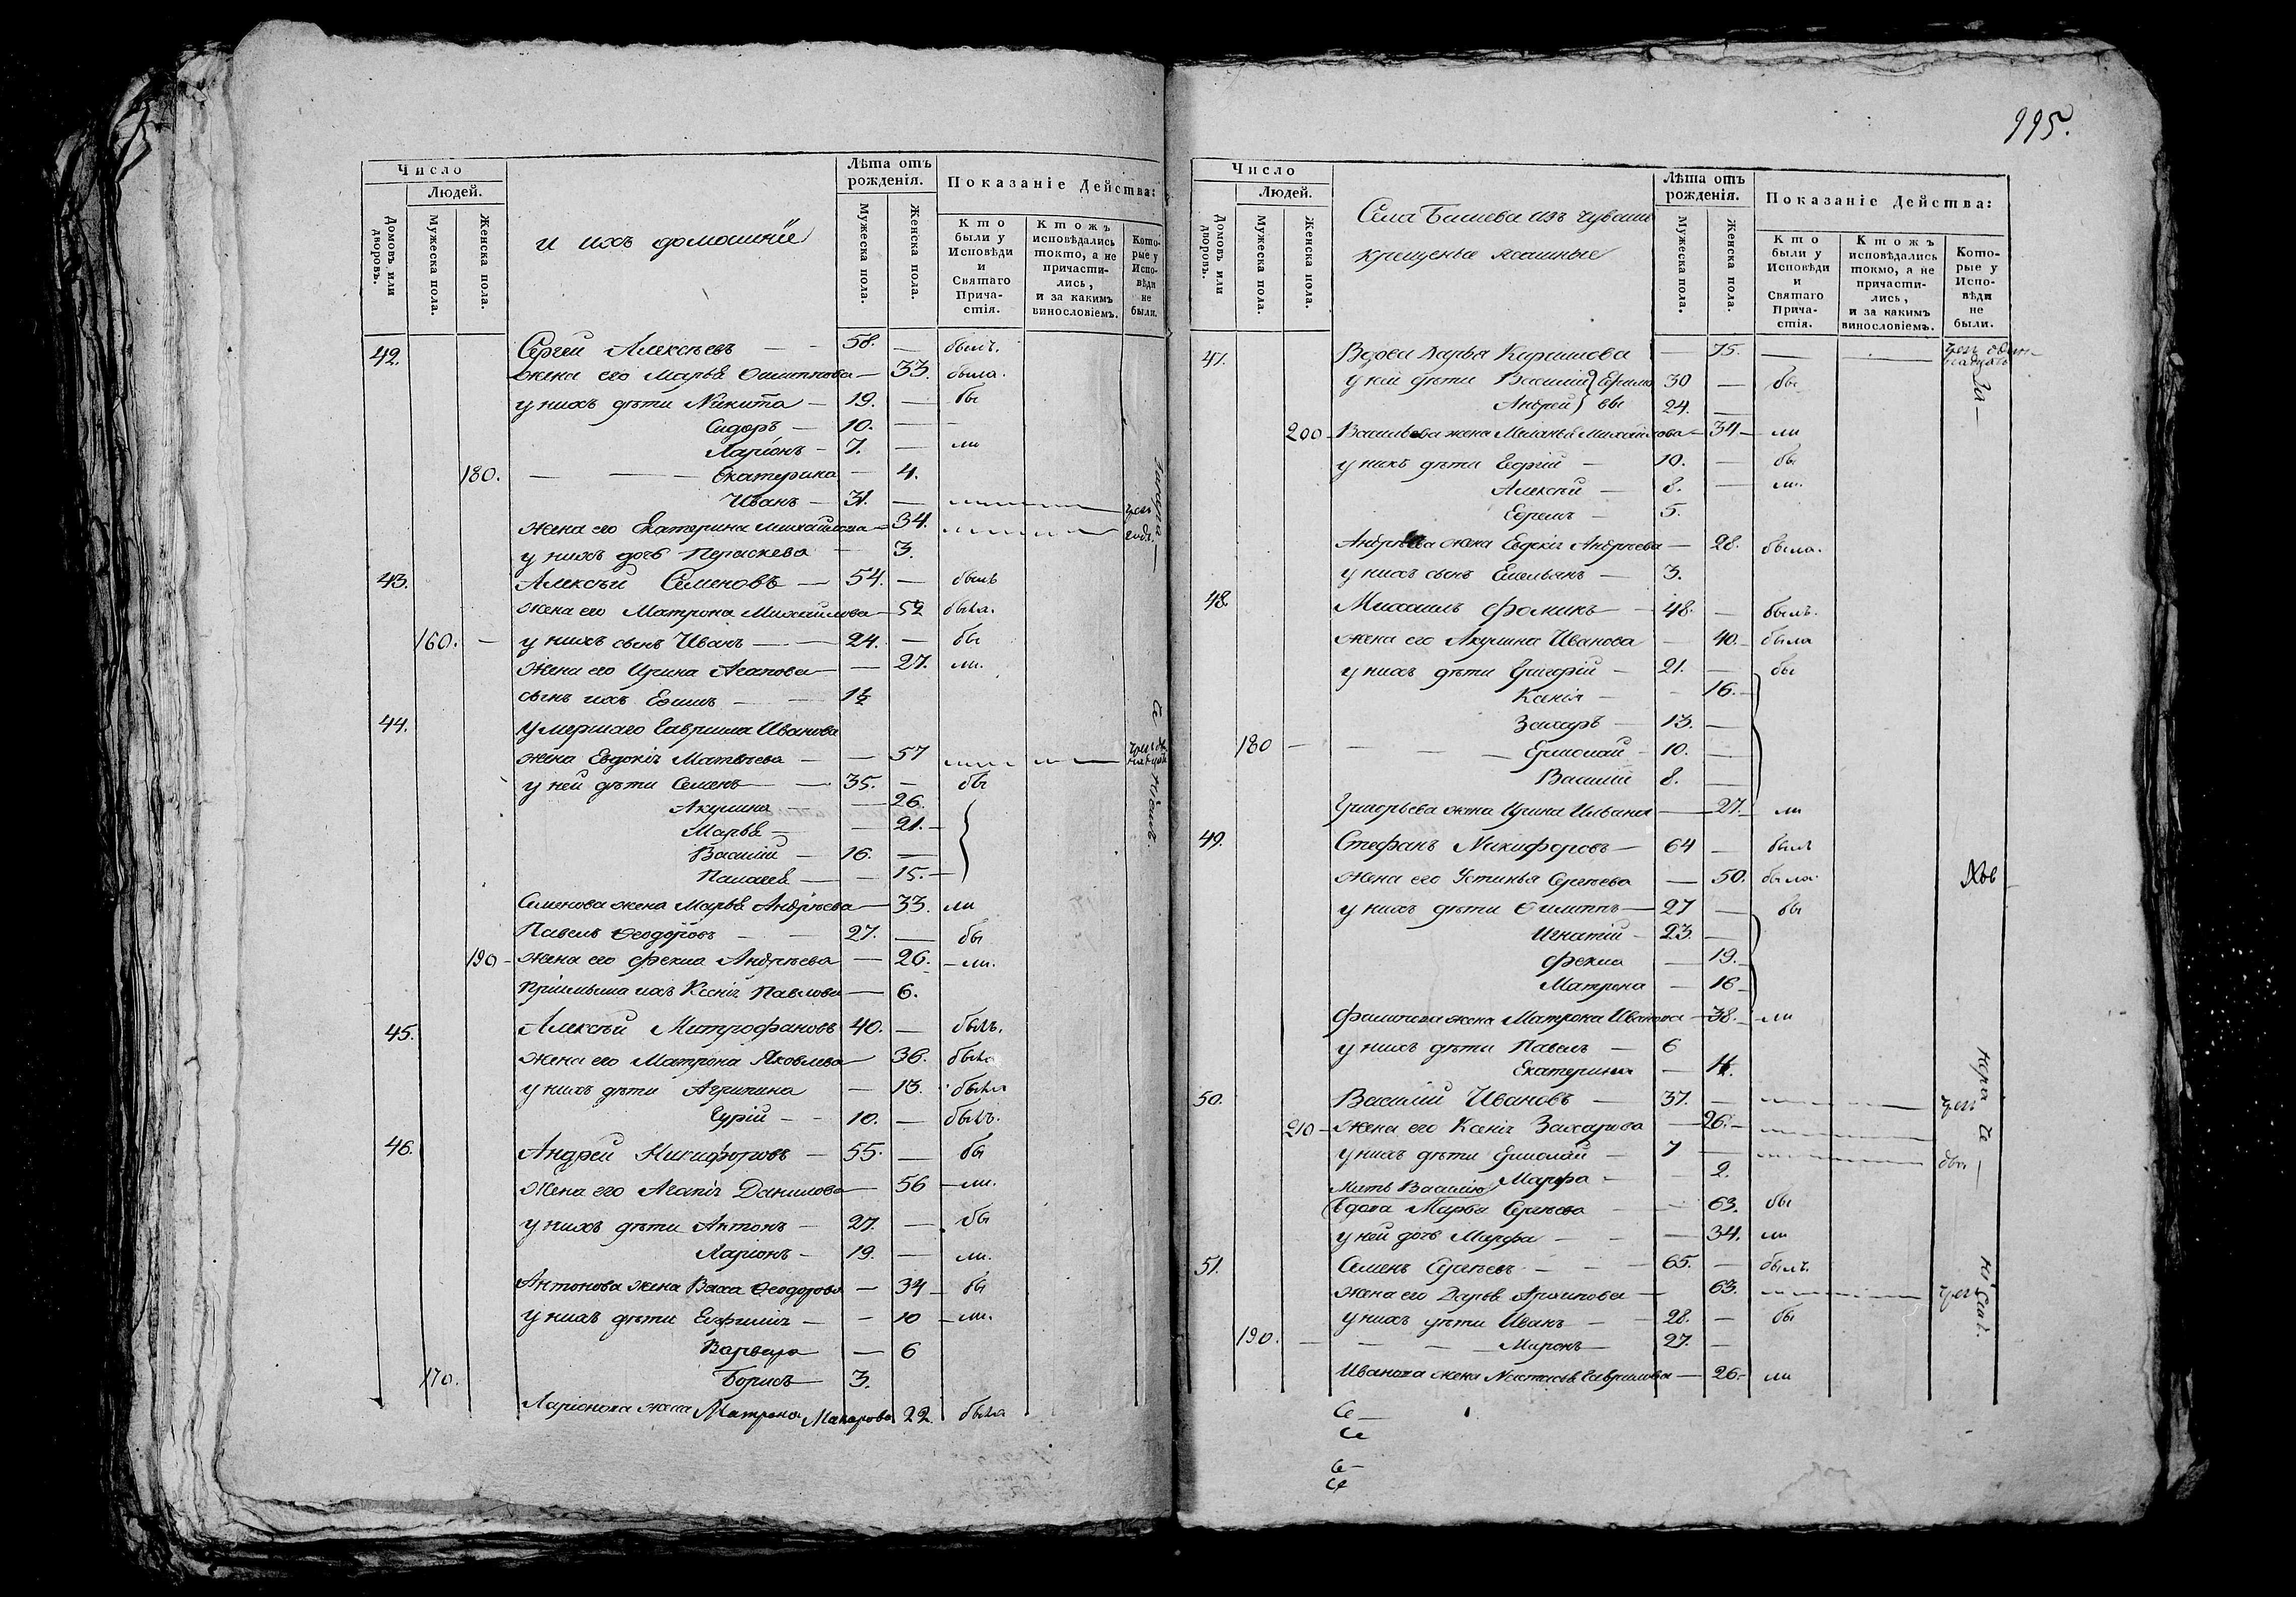 Число
Людей.
Домовъ или дворовъ.
Мужеска пола.
Женска пола.
и ихъ домашніи
Лѣта отъ рожденія.
Мужеска пола.
Женска пола.
Показаніе Действа:
Кто были у Исповѣди и Святаго Прича-стія.
Ктожъ исповѣдались токмо, а не причасти-лись, и за какимъ винословіемъ.
Кото-рые у Испо-вѣди не были.
42. Сергей Алексѣевъ — 58. — былъ.
жена его Марья — 33. была.
у нихъ дѣти Никита — 19. — бы
Сидоръ — 10. —
Ларіонъ — 7. — ли
180. — Екатерина — 4.
Иванъ — 31. —
жена его Екатерина Михайлова — 34.
у нихъ дочь Параскева — 3.
43. Алексѣй Семеновъ — 54. — былъ
жена его Матрона Михайлова — 52 была.
160. — у нихъ сынъ Иванъ — 24. — бы
жена его Ирина Агапова — 27. ли.
сынъ ихъ Ефимъ — 1½
44. Умершаго Гаврила Иванова
жена Евдокія Матвѣева — 57
у ней дѣти Семенъ — 35. — бы
Акулина — 26.
Марья — 21. —
Василій — 16. —
Палагея — 15. —
Семенова жена Марья Андрѣева — 33. ли
Павелъ Ѳеодоровъ — 27. — бы
190 — жена его Фекла Андрѣева — 26. — ли.
Пріимыша ихъ Ксенія Павлова — 6.
45. Алексѣй Митрофановъ 40. — былъ.
жена его Матрона Яковлева — 36. была
у нихъ дѣти Агрипина — 13. была
Гурій — 10. — былъ.
46. Андрей Никифоровъ — 55. — бы
жена его Агапія Данилова — 56 — ли.
у нихъ дѣти Антонъ — 27. — бы
Ларіонъ — 19. — ли.
Антонова жена Васса Ѳеодорова — 34 — бы
у нихъ дѣти Евфимія — 10 — ли.
Варвара — 6
170. Борисъ 3.
Ларіонова жена Матрона Макарова 22. была
995.
Число
Людей.
Домовъ или дворовъ.
Мужеска пола.
Женска пола.
Села изъ чувашъ
крещеные ясашные
Лѣта отъ рожденія.
Мужеска пола.
Женска пола.
Показаніе Действа:
Кто были у Исповѣди и Святаго Прича-стія.
Ктожъ исповѣдались токмо, а не причасти-лись, и за какимъ винословіемъ.
Кото-рые у Испо-вѣди не были.
47. Вдова Дарья — 75. —
у ней дѣти Василій 30 — бы
Андрей 24. —
200 — Васильева жена Меланья Михайлова — 34 — ли
у нихъ дѣти Георгій — 10. — бы
Алексѣй — 8. — ли.
Ефремъ — 5.
Андрѣева жена Евдокія Андрѣева — 28. была.
у нихъ сынъ Емельянъ — 3.
48. Михаилъ Фоминъ — 48. — былъ.
жена его Акулина Иванова — 40. — была
у нихъ дѣти Григорій — 21. — бы
Ксенія — 16. —
Захаръ — 13. —
180 — Ермолай — 10. —
Василій 8. —
Григорьева жена Ирина — 27. — ли
49. Стефанъ Никифоровъ — 64 — былъ
жена его Устинья Сергѣева — 50. была.
у нихъ дѣти — 27 — бы
Игнатій — 23. —
Фекла — 19. —
Матрона — 16 —
жена Матрона Иванова — 38. — ли
у нихъ дѣти Павелъ — 6
Екатерина — 4.
50. Василій Ивановъ — 37. —
210 — жена его Ксенія Захарова — 26. —
у нихъ дѣти Ермолай — 7 —
Марфа — 2.
Мать Василію
вдова Марья Сергѣева — 63. бы
у ней дочь Марфа — 34. ли
51. Семенъ Сергѣевъ — 65. — былъ.
жена его Дарья Архипова — 63.
у нихъ дѣти Иванъ — 28. — бы
190. — Миронъ — 27. —
Иванова жена Настасья Гаврилова — 26. — ли